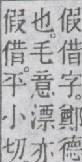 假借字。鄭
也。毛意漂亦
假借。平小切